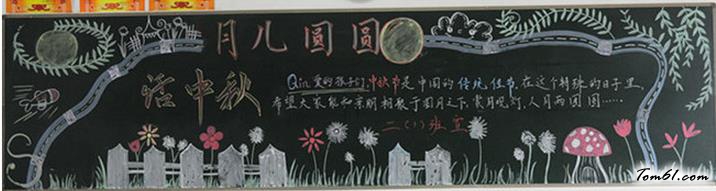 月儿圆圆
话中秋
Qin爱的孩子们,中秋节是中国的传统佳节,在这个特殊的日子里,
希望大家能和亲朋相聚于圆月之下,赏月观灯,人月两团圆……
二(1)班宣
Tom61.com